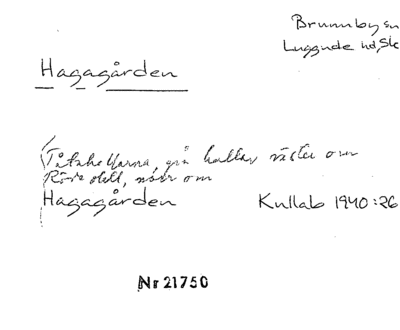 Brunnby sn
Luggude hd, Sk
Hagagården
Tåtahallarna, på hallar väster om
Röde, norr om
Hagagården
Kullab 1940:26
Nr 21750